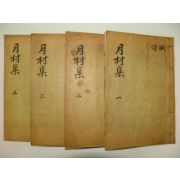 月村集 一
月村集 二
月村集 三
月村集